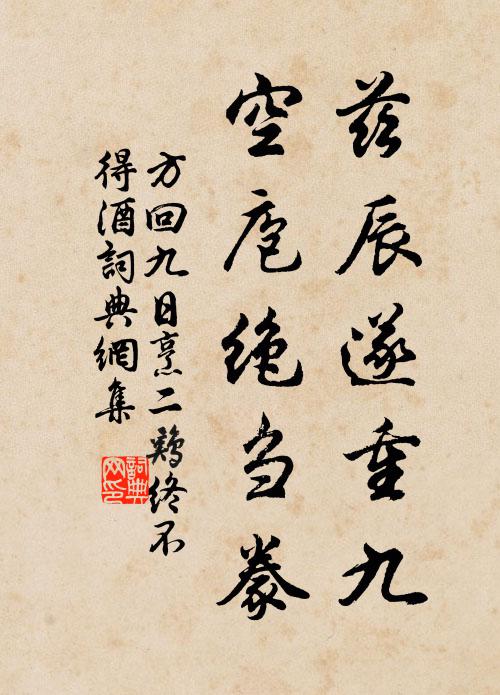 茲辰遂重九
空庖絕芻豢
方回九日烹二鷄終不
得酒詞典網集
詞典
网印